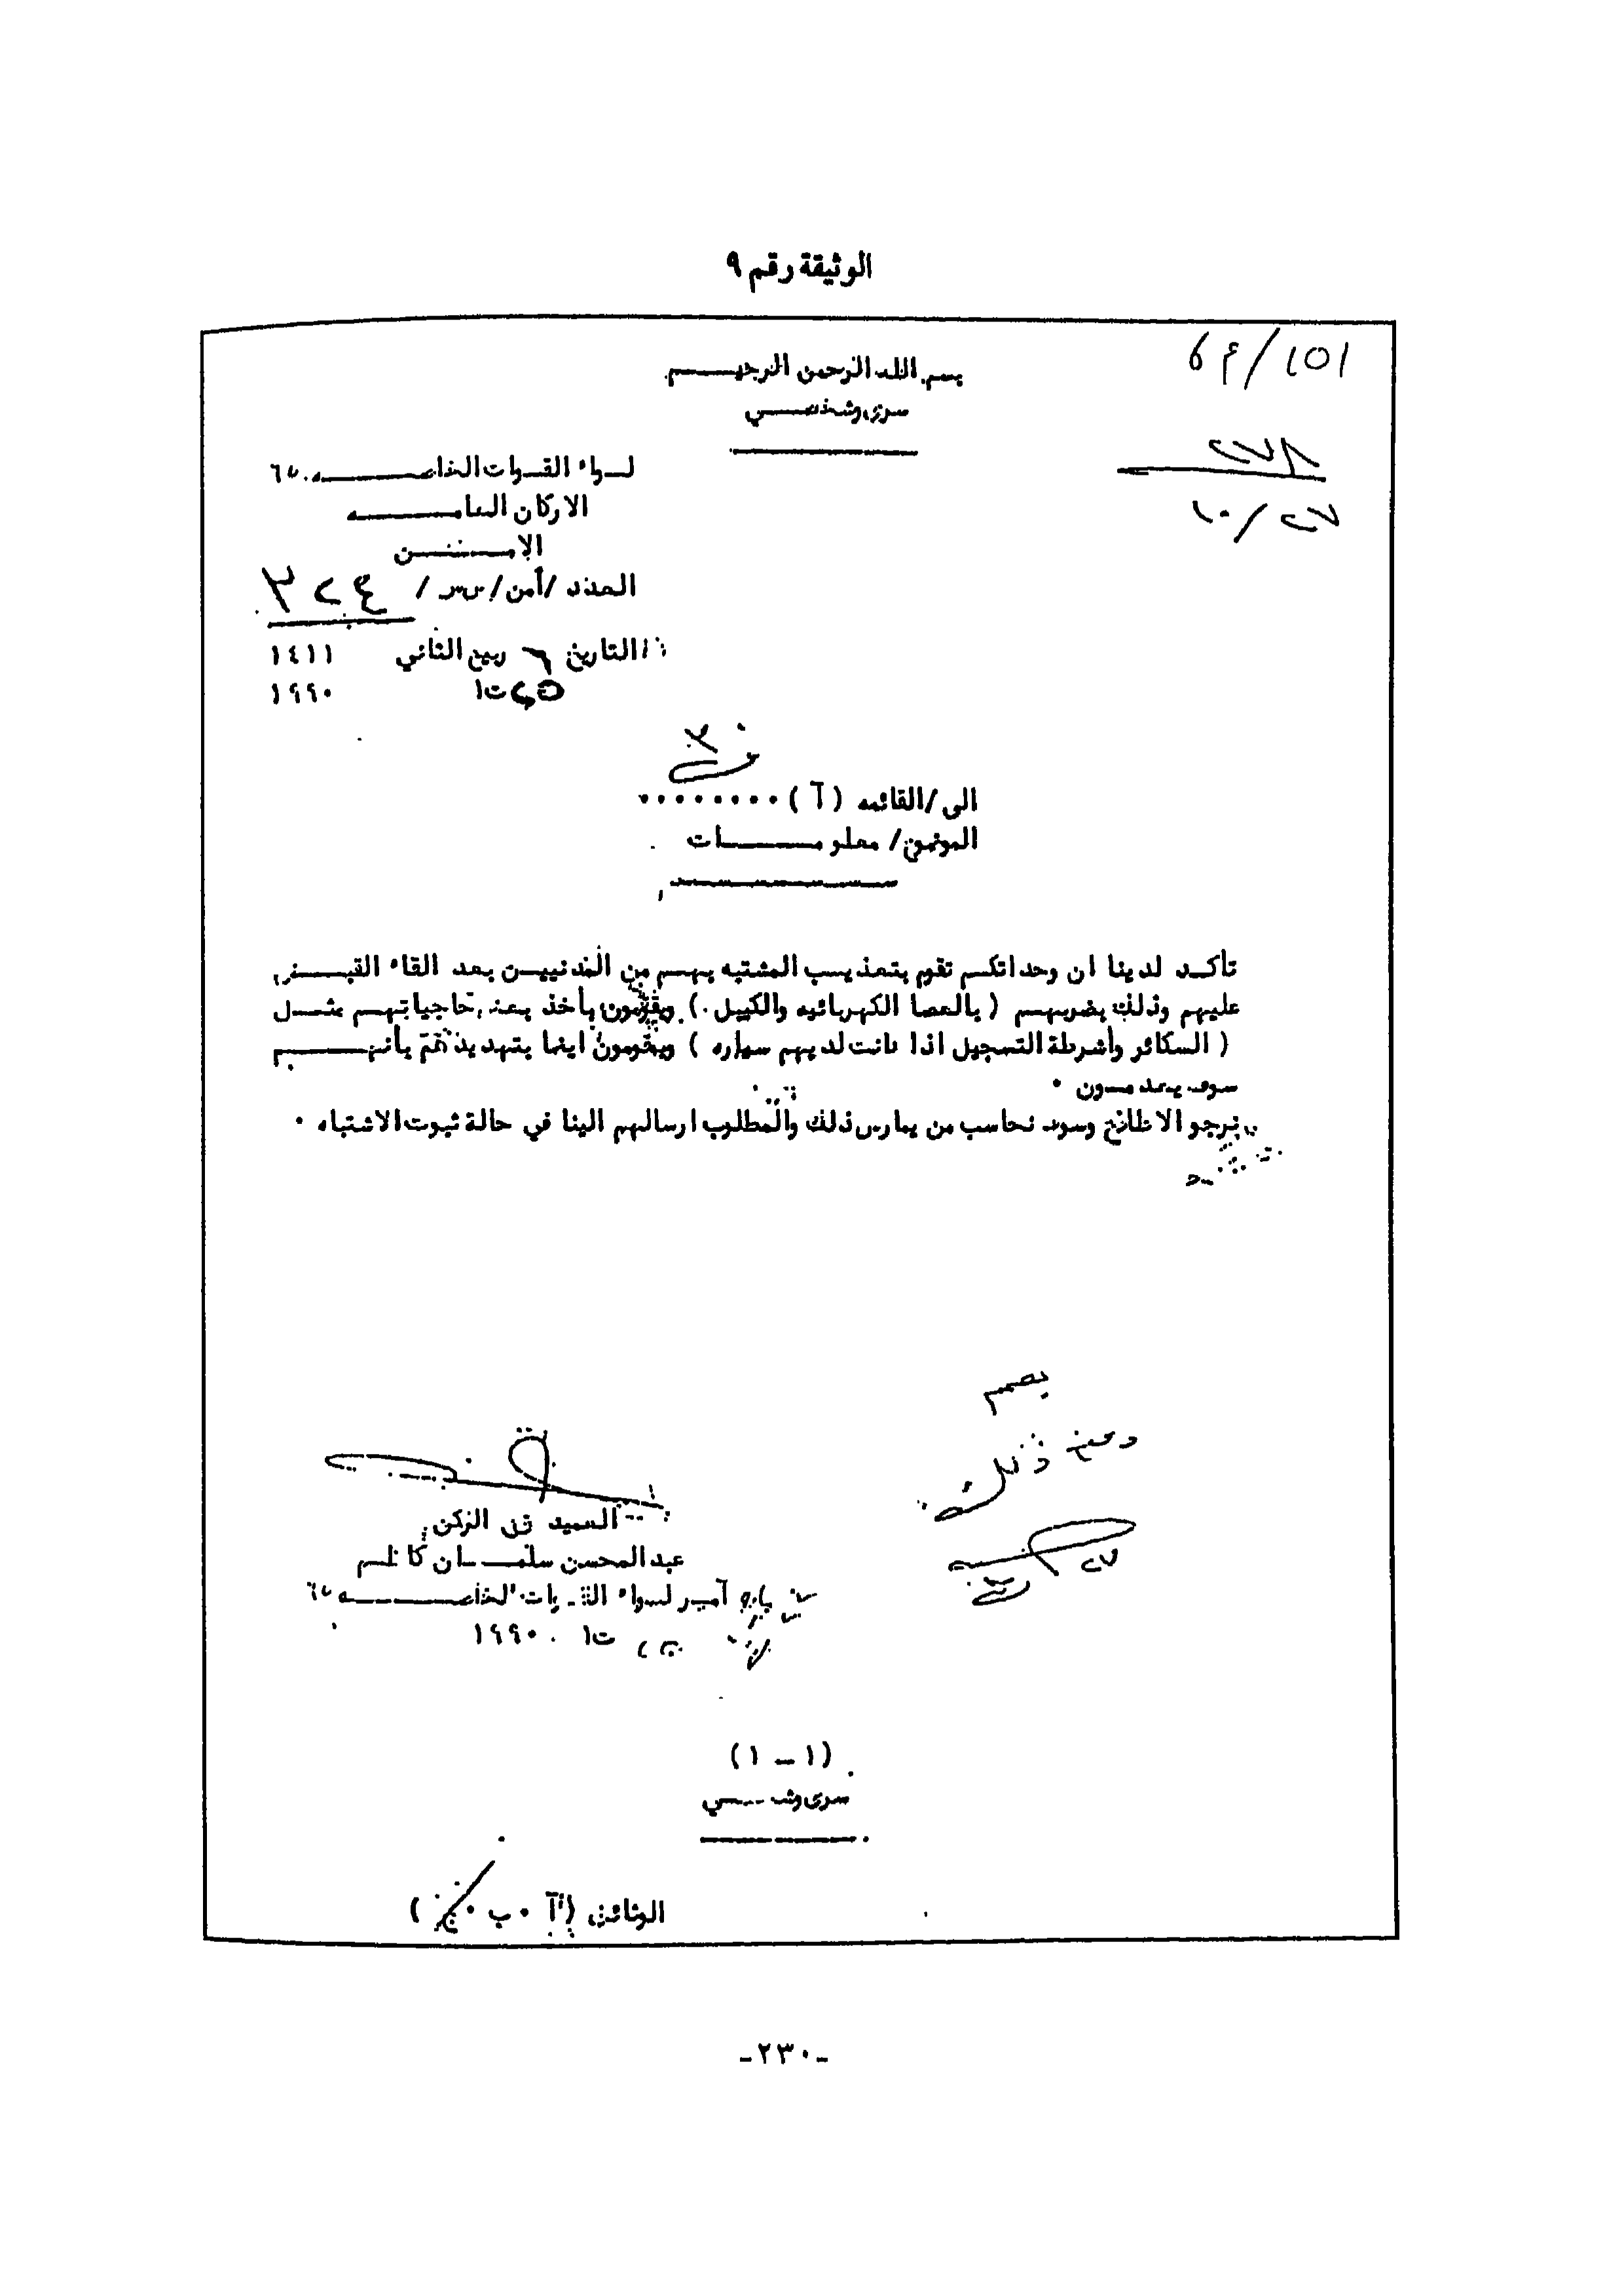 الوثيقة رقم ٩
بسم الله الرحمن الرحيم
سري وشخصي
لواء القوات الخاصه ٦٥
الاركان العامه
الامن
العدد /أمن/س س/ ٣٢٤
التاريخ ٦ ربيع الثاني ١٤١١
٢٥ ت١ ١٩٩٠
الى/القائمه (آ) ........
الموضوع/ معلومات
تأكد لدينا ان وحداتكم تقوم بتعذيب المشتبه بهم من المدنيين بعد القاء القبض
عليهم وذلك بضربهم ( بالعصا الكهربائيه والكيبل .) ويقومون بأخذ بعض حاجياتهم مثل
( السكائر وأشرطة التسجيل اذا كانت لديهم سياره ) ويقومون ايضا بتهديدهم بأنهم
سوف يعدمون .
نرجو الاطلاع وسوف نحاسب من يمارس ذلك والمطلوب ارسالهم الينا في حالة ثبوت الاشتباه .
العميد ق خ الركن
عبد المحسن سلمان كاظم
آمر لواء القوات الخاصه ٦٥
ت١ ١٩٩٠
(١ - ١)
سري وشخصي
الوثائق (آ . ب .
-٢٣٠-